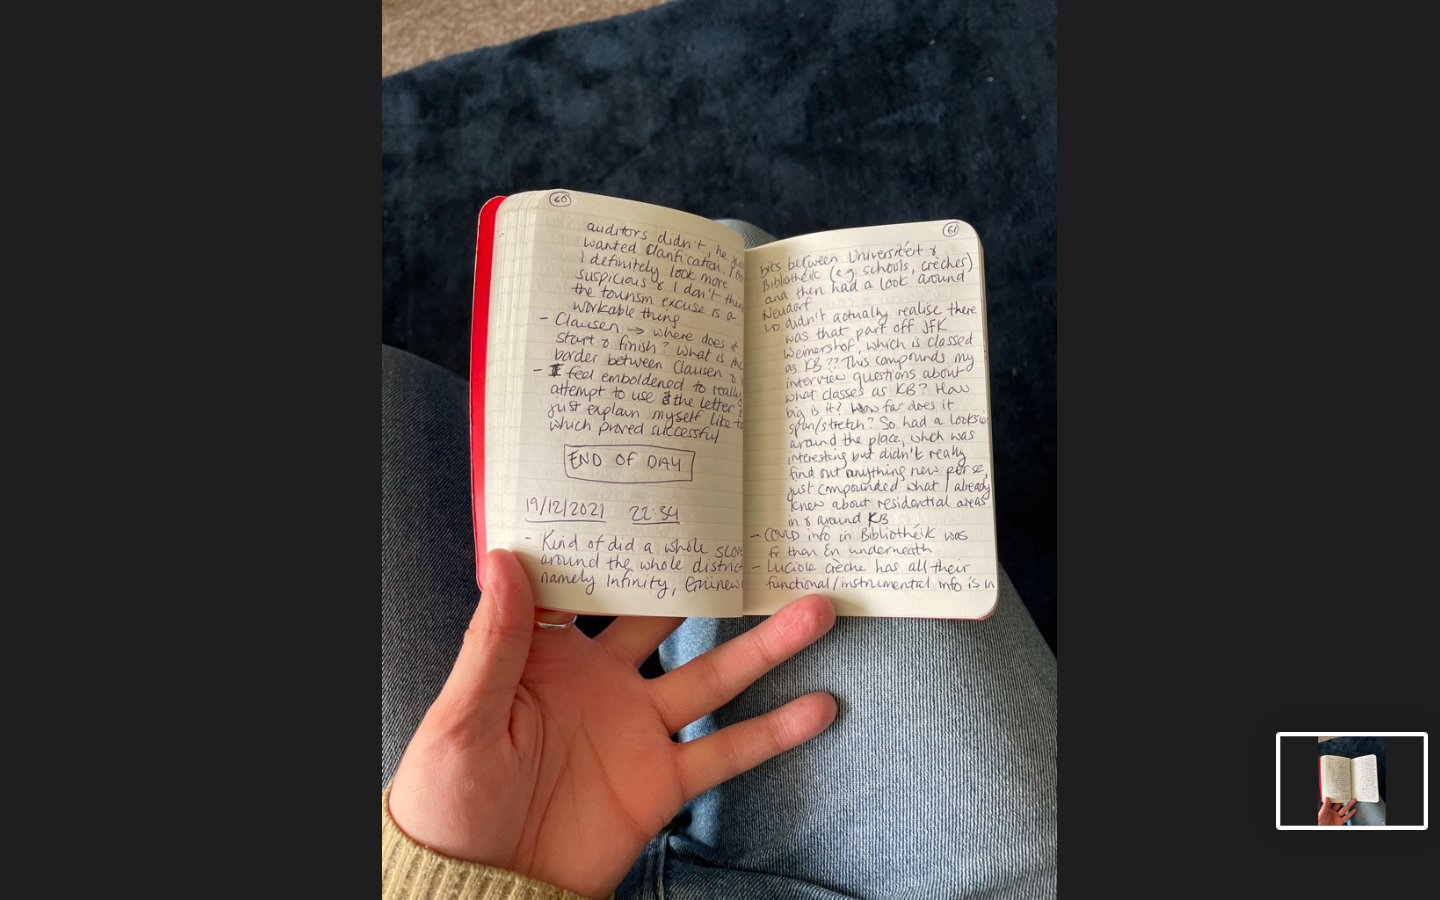 60
auditors didn't, he
wanted clarification. I
I definitely look more
suspicious & I don't
the tourism excuse is a
workable thing
- Clausen → where does it
start & finish? What is the
border between Clausen &
- I feel emboldened to really
attempt to use the letter &
just explain myself like
which proved successful
END OF DAY
19/12/2021 22:34
- Kind of did a whole
around the whole district
namely Infinity,
61
bits between Universitéit &
Bibliothéik (e.g. schools, crèches)
and then had a look around
Neudorf
↳ didn't actually realise there
was that part off JFK
Weimershof, which is classed
as KB?? This compounds my
interview questions about
what classes as KB? How
big is it? How far does it
span/stretch? So had a looksie
around the place, which was
interesting but didn't really
find out anything new per se,
just compounded what I already
knew about residential areas
in & around KB
- COVID info in Bibliothéik was
Fr then En underneath
- Luciole crèche has all their
functional/instrumental info is in